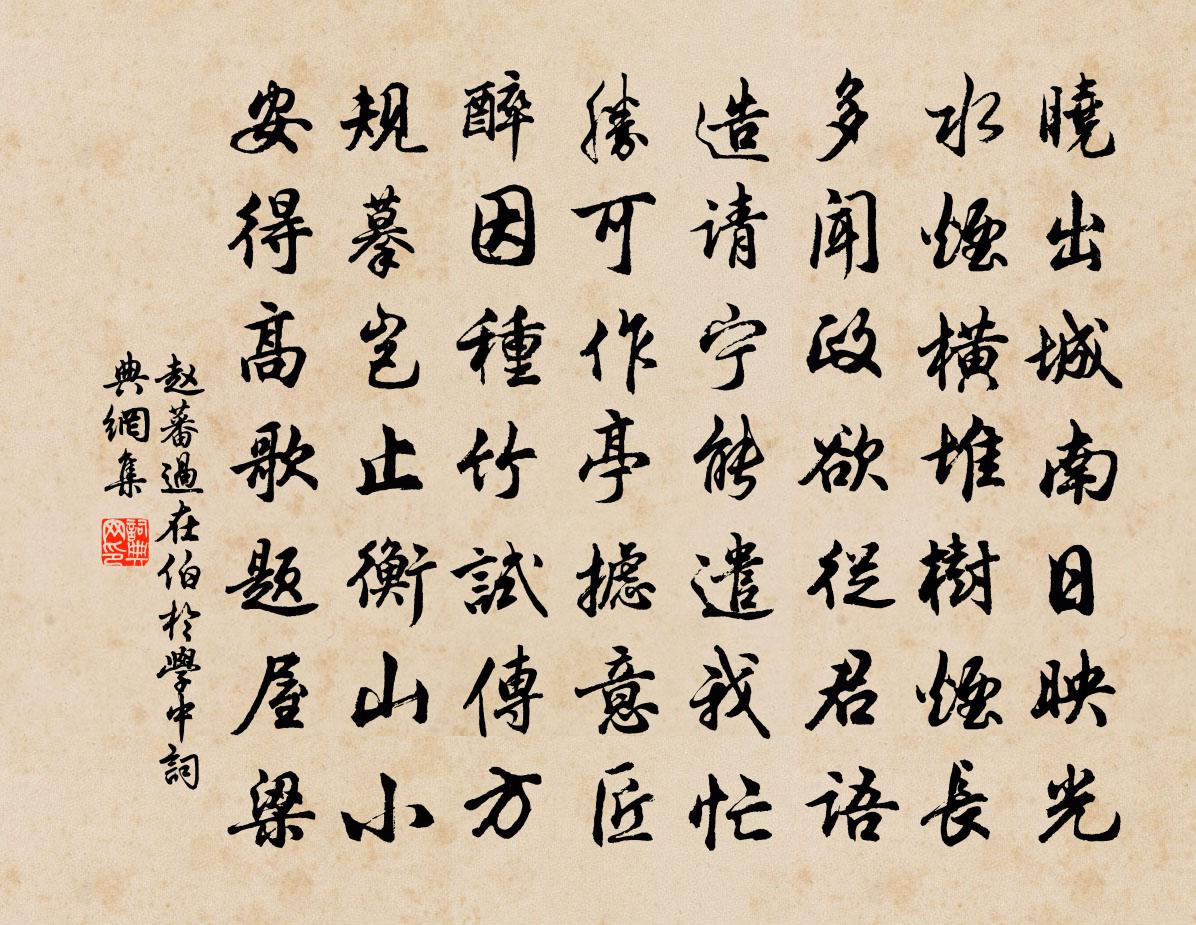 曉出城南日映光
水煙橫堆樹煙長
多聞政欲從君語
造请宁能遣我忙
勝可作亭攄意匠
醉因種竹試傳方
規摹岂止衡山小
安得高歌题屋梁
赵蕃過在伯於學中詞
典網集
詞典網印